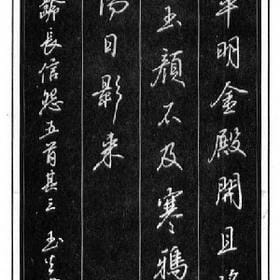 平明金殿開且將
玉顏不及寒鴉
陽日影來
齡長信怨五首其三 玉生